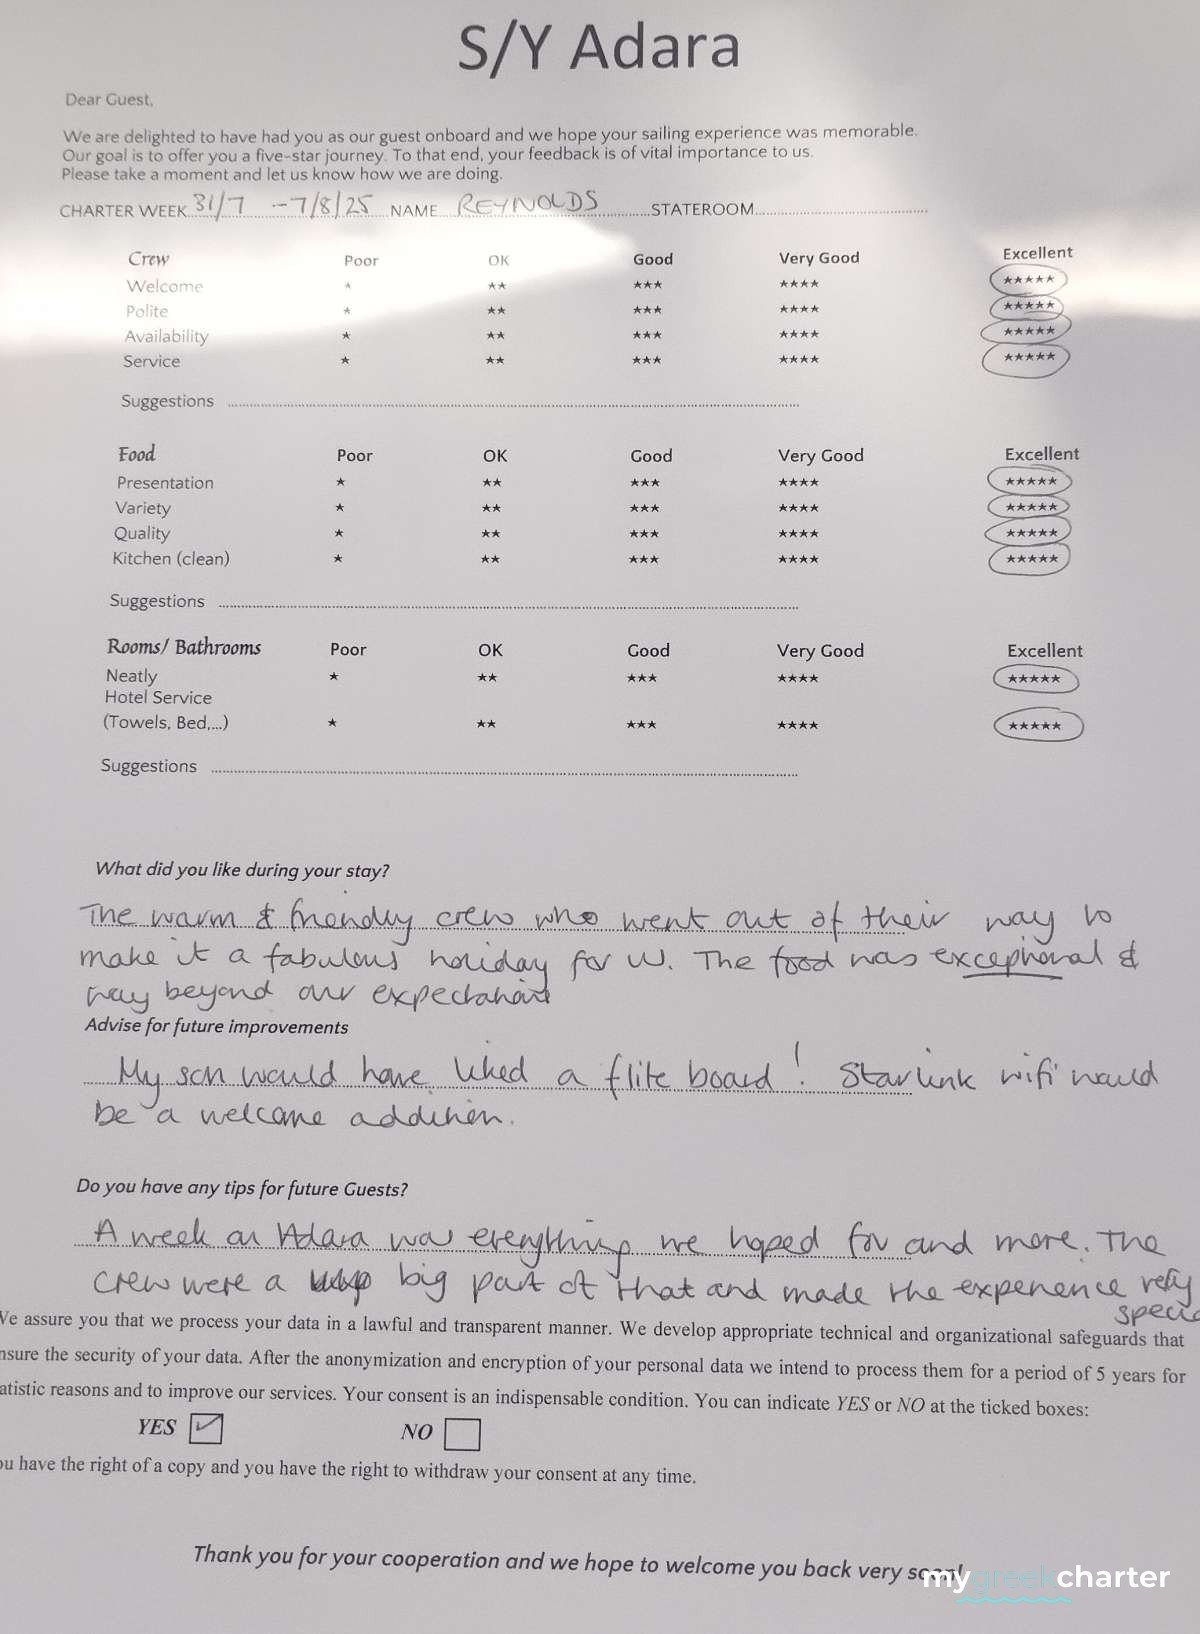 S/Y Adara
Dear Guest,
We are delighted to have had you as our guest onboard and we hope your sailing experience was memorable.
Our goal is to offer you a five-star journey. To that end, your feedback is of vital importance to us.
Please take a moment and let us know how we are doing.
CHARTER WEEK 31/7 - 7/8/25 NAME REYNOLDS STATEROOM
Crew Poor OK Good Very Good Excellent
Welcome ★ ★★ ★★★ ★★★★ ★★★★★
Polite ★ ★★ ★★★ ★★★★ ★★★★★
Availability ★ ★★ ★★★ ★★★★ ★★★★★
Service ★ ★★ ★★★ ★★★★ ★★★★★
Suggestions
Food Poor OK Good Very Good Excellent
Presentation ★ ★★ ★★★ ★★★★ ★★★★★
Variety ★ ★★ ★★★ ★★★★ ★★★★★
Quality ★ ★★ ★★★ ★★★★ ★★★★★
Kitchen (clean) ★ ★★ ★★★ ★★★★ ★★★★★
Suggestions
Rooms/ Bathrooms Poor OK Good Very Good Excellent
Neatly ★ ★★ ★★★ ★★★★ ★★★★★
Hotel Service
(Towels, Bed,...) ★ ★★ ★★★ ★★★★ ★★★★★
Suggestions
What did you like during your stay?
The warm & friendly crew who went out of their way to
make it a fabulous holiday for us. The food was exceptional &
way beyond our expectations
Advise for future improvements
My son would have liked a flite board! Starlink wifi would
be a welcome addition.
Do you have any tips for future Guests?
A week on Adara was everything we hoped for and more. The
crew were a big part of that and made the experience very
special
We assure you that we process your data in a lawful and transparent manner. We develop appropriate technical and organizational safeguards that
nsure the security of your data. After the anonymization and encryption of your personal data we intend to process them for a period of 5 years for
atistic reasons and to improve our services. Your consent is an indispensable condition. You can indicate YES or NO at the ticked boxes:
YES ✓ NO
ou have the right of a copy and you have the right to withdraw your consent at any time.
Thank you for your cooperation and we hope to welcome you back very soon!
mygreekcharter